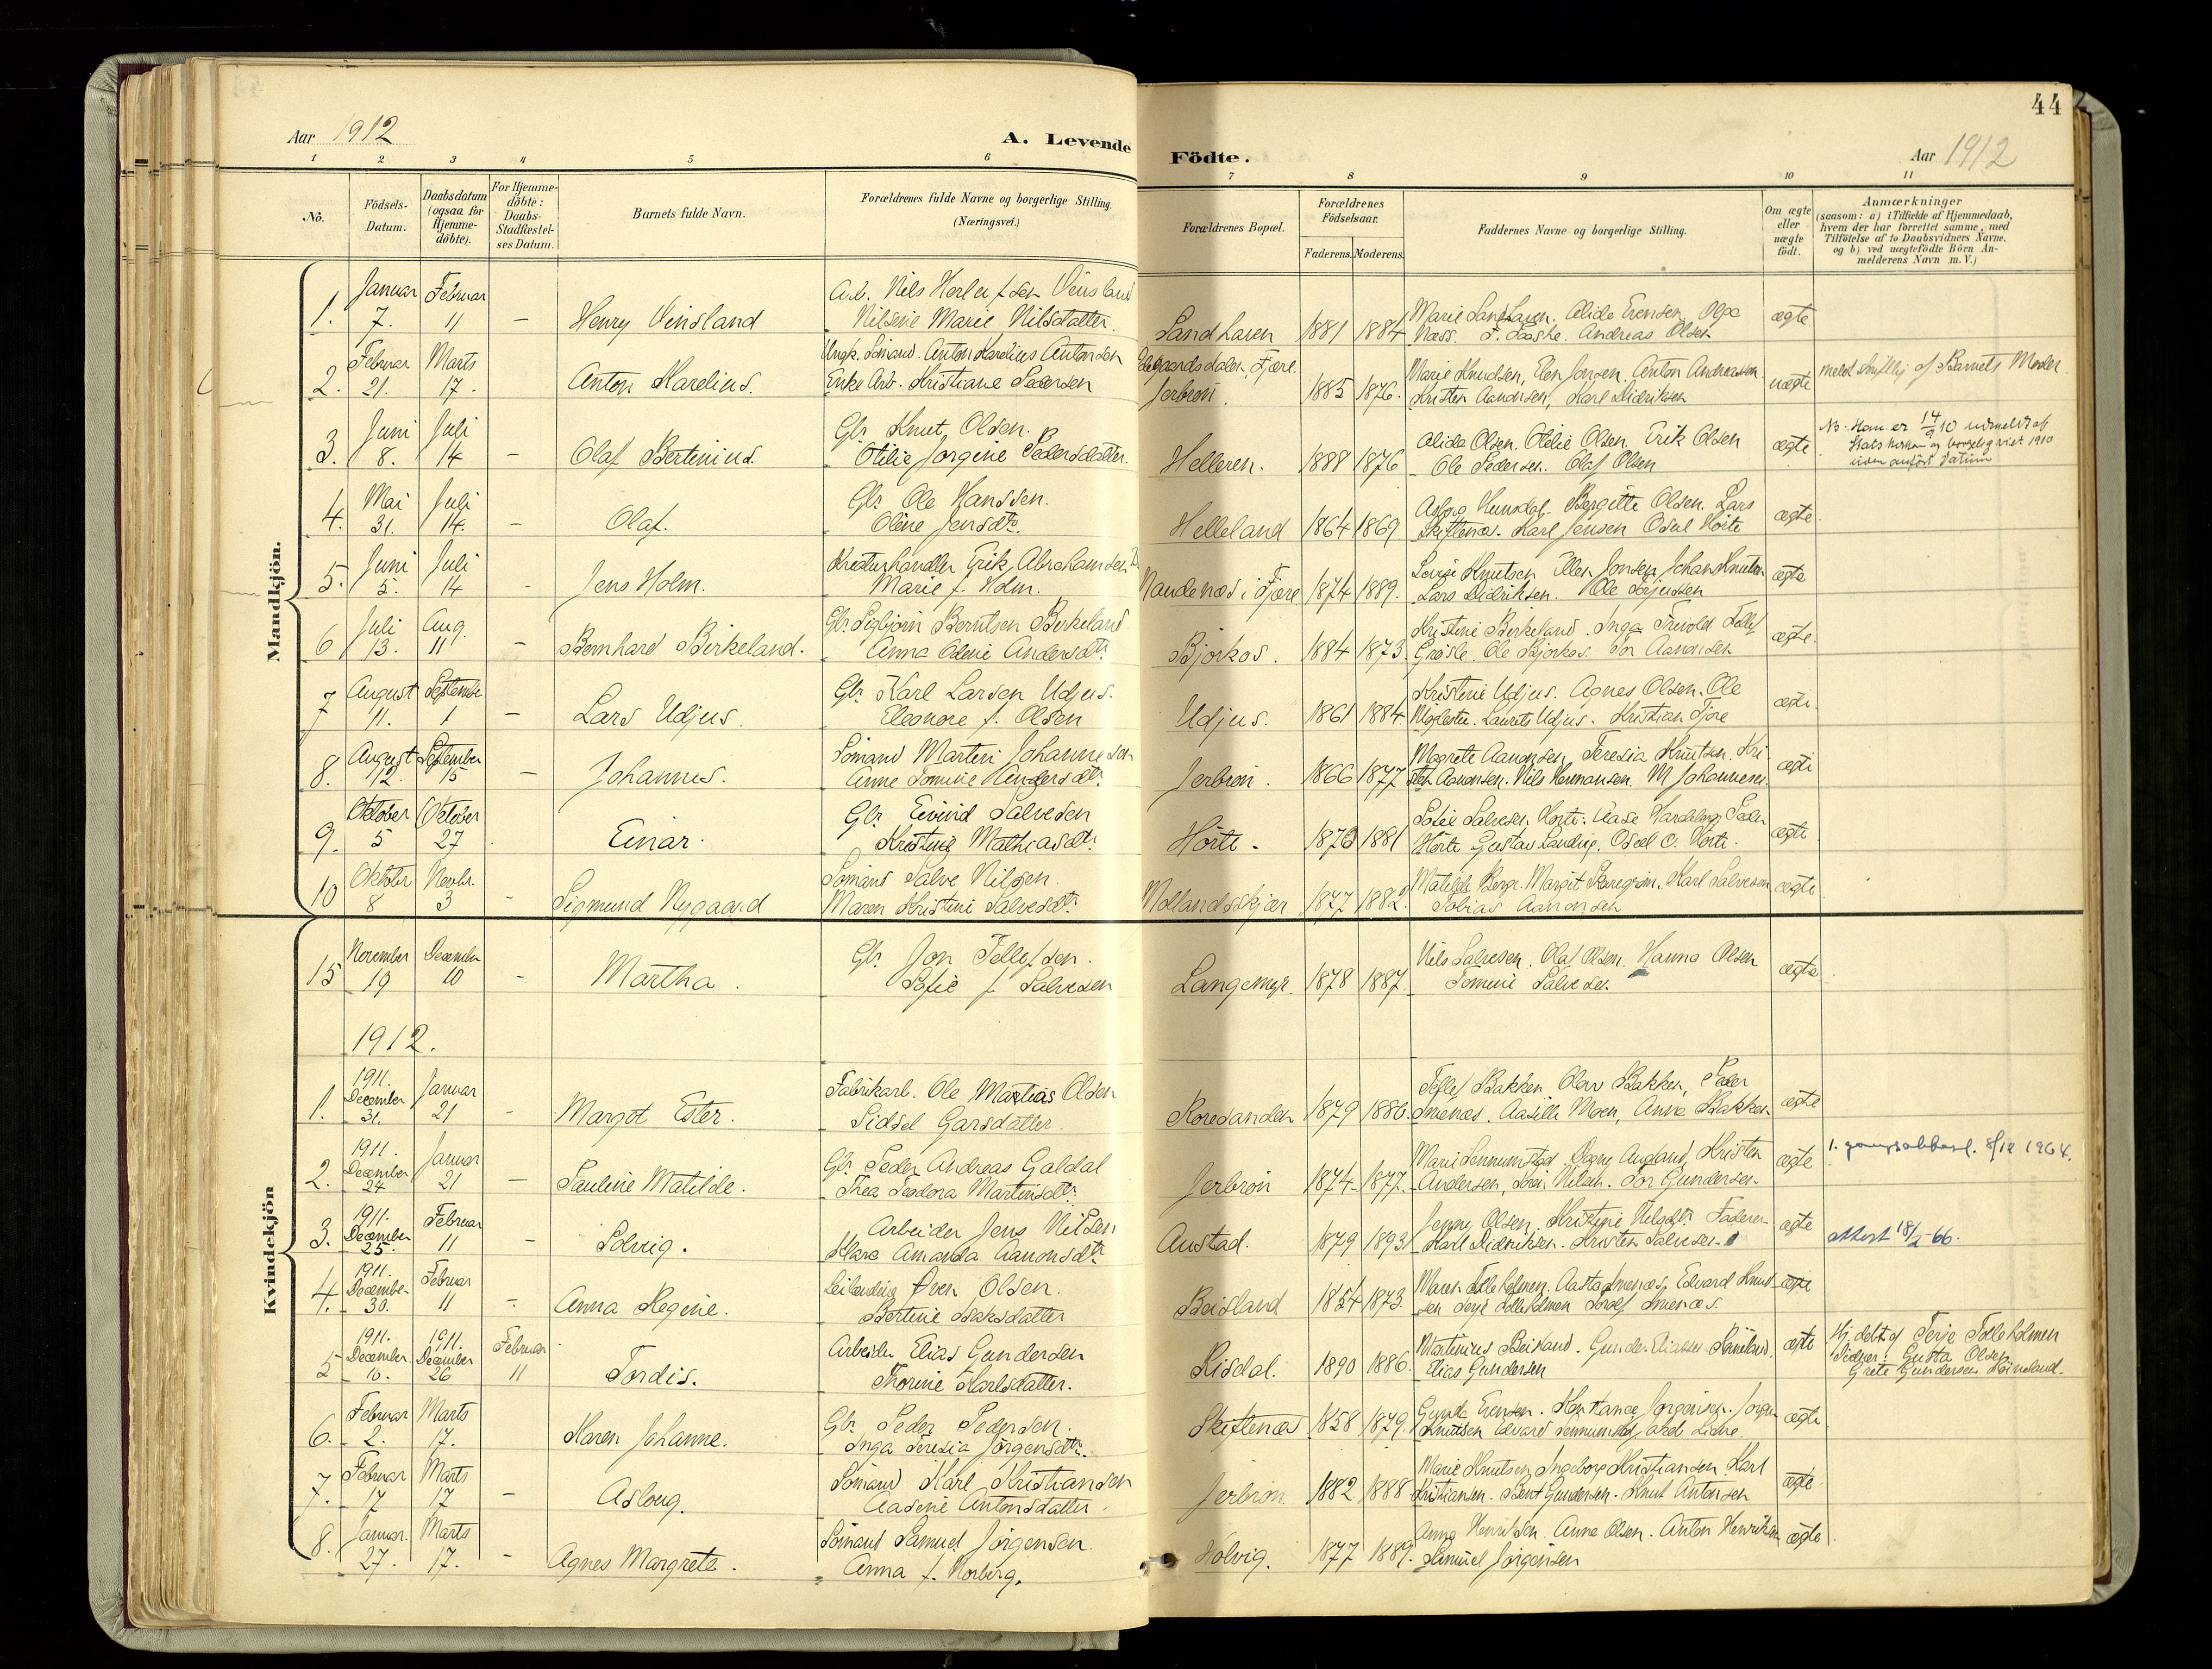 44
Aar 1912
A. Levende Födte.
Aar 1912
1 2 3 4 5 6 7 8 9 10 11
No. Födsels-Datum. Daabsdatum (ogsaa for Hjemme-döbte). For Hjemme-döbte: Daabs-Stadfæstel-ses Datum. Barnets fulde Navn. Forældrenes fulde Navne og borgerlige Stilling. (Næringsvei.) Forældrenes Bopæl. Forældrenes Födselsaar. Faderens. Moderens. Faddernes Navne og borgerlige Stilling. Om ægte eller uægte født. Anmærkninger (saasom: a) i Tilfælde af Hjemmedaab, hvem der har forrettet samme, med Tilföielse af to Daabsvidners Navne, og b) ved uægtefödte Börn An-melderens Navn m. V.)
Mandkjön.
Januar Februar Arb. Nils Herlufsen Vinsland Marie Sandhaven. Alida Evensen Olga
1. 7. 11 – Henry Vinsland Nilsine Marie Nilsdatter. Sandhaven 1881 1884 Næss. Andreas Olsen ægte
Februar Marts Ungk. Sömand. Anton Karelius Antonsen Fjære. Marie Knudsen, Elen Jonsen. Anton Andreasen
2. 21. 17. Anton Karelius. Enke Arb. Kristiane Pedersen Jerbron. 1885 1876. Kristen Aanonsen, Karl Didriksen uægte meldt skriftlig af Barnets Moder
Juni Juli Gbr. Knut Olsen. Alida Olsen. Otilie Olsen. Erik Olsen
3. 8. 14 – Olaf Bertinius. Otilie Jorgine Pedersdatter. Helleren. 1888 1876 Ole Pedersen. Olaf Olsen ægte Nb. Han er 14/9 10 udmeldt af Statskirken og borgerlig viet 1910 uden anført Datum
Mai Juli Gbr Ole Hanssen. Bergitte Olsen. Lars
4. 31. 14. – Olaf. Oline Jensdtr. Helleland 1864 1869 Skiftenæs. Karl Jensen Osul Hörte ægte.
Juni Juli Kreaturhandler Erik Abrahamsen Knutsen Ellen Jonsen, Johan Knutsen
5. 5. 14 – Jens Holm. Marie f. Holm. i Fjære 1874 1889. Lars Didriksen. Ole ægte
Juli Aug. Gbr. Sigbjörn Berntsen Birkeland. Kristine Birkeland. Inga Trevold Tellef
6 13. 11 – Bernhard Birkeland. Anna Andersdtr. Bjorkos. 1884 1873. Ole Bjorkos. Tor Aanonsen ægte.
August September Gbr. Karl Larsen Udjus. Kristine Udjus. Agnes Olsen. Ole
7 11. 1 – Lars Udjus. Eleonore f. Olsen Udjus. 1861 1884 Laurits Udjus. Kristian Fjære ægte.
August September Sömand Martin Johannesen Magrete Aanonsen Teresia Knutsen. Kri-
8. 12. 15 – Johannes. Anne Tomine Jerbron. 1866 1877 sten Aanonsen. Nils Hermansen. M Johannesen. ægte
Oktober Oktober Gbr. Eivind Salvesen Sofie Salvesen Hörte. Aase Peder
9. 5 27 Einar. Kristine Mathiasdtr. Hörte. 1873 1881 Hörte Gustav Osuld O. Hörte. ægte
Oktober Novbr. Sömand Salve Nilsen. Matilde Berge. Margit Karl Salvesen
10 8 3 – Sigmund Nygaard Maren Kristine Salvesdtr. Mollandsskjær 1877 1882. Tobias Aanonsen ægte
Kvindekjön
November December Gbr. Jon Tellefsen. Nils Salvesen. Olaf Olsen. Hanna Olsen
15 19 10 – Martha. Sofie f Salvesen Langemyr. 1878 1887. Tomine Salvesen ægte
1912.
1911. December Januar Fabrikarb. Ole Mathias Olsen Tellef Bakken Olav Bakken, Peder
1. 31. 21 – Margot Ester. Sidsel Garsdatter. Roresanden 1879 1886. Smenæs. Aasille Moen, Anna Bakken ægte
1911. December Januar Gbr. Peder Andreas Galdal Marie Dagny Augland, Kristen
2. 24 21 – Pauline Matilde. Thea Teodora Martinsdtr. Jerbron 1874 1877. Andersen, Nilsen. Tor Gundersen. ægte 1. gangsattest. 8/12 1964.
1911. December Februar Arbeider Jens Nilsen Jenny Olsen. Kristine Nilsdtr. Faderen
3. 25. 11 – Solvig. Klara Amanda Aanonsdtr. Austad. 1879 1893 Karl Didriksen. Kristen Salvesen. ægte attest 18/2-66.
1911. December Februar Leilænding Even Olsen. Maren Tolleholmen, Aasta Smenæs, Edvard Knud-
4. 30. 11 – Anna Regine. Bertine Isaksdatter Beisland 1854 1873. sen Terje Tolleholmen Smenæs. ægte
1911. December 1911. December Februar Arbeider Elias Gundersen Martinius Beisland. Gunder Eliassen
5 10. 26 11 Tordis. Thorine Karlsdatter. Risdal. 1890 1886. Elias Gundersen ægte Hj. døbt af Terje Tolleholmen Vidner: Gusta Olsen Grete Gundersen
Februar Marts Gbr. Peder Pedersen. Gunda Evensen. Konstance Jorgensen. Jorgen
6. 2. 17. Karen Johanne. Inga Teresia Jörgensdtr. Skiftenæs 1858 1879. Knutsen Edvard ægte
Februar Marts Sömand Karl Kristiansen Marie Knutsen, Ingeborg Kristiansen. Karl
7. 17 17 – Aslaug. Aasene Antonsdatter. Jerbron 1882 1888 Kristiansen. Bent Gundersen. Knut Antonsen ægte.
Januar. Marts Sömand Samuel Jörgensen. Anna Henriksen. Anne Olsen. Anton Henriksen
8. 27. 17. – Agnes Margrete. Anna f. Norberg. Holvig. 1877 1889. Samuel Jörgensen ægte